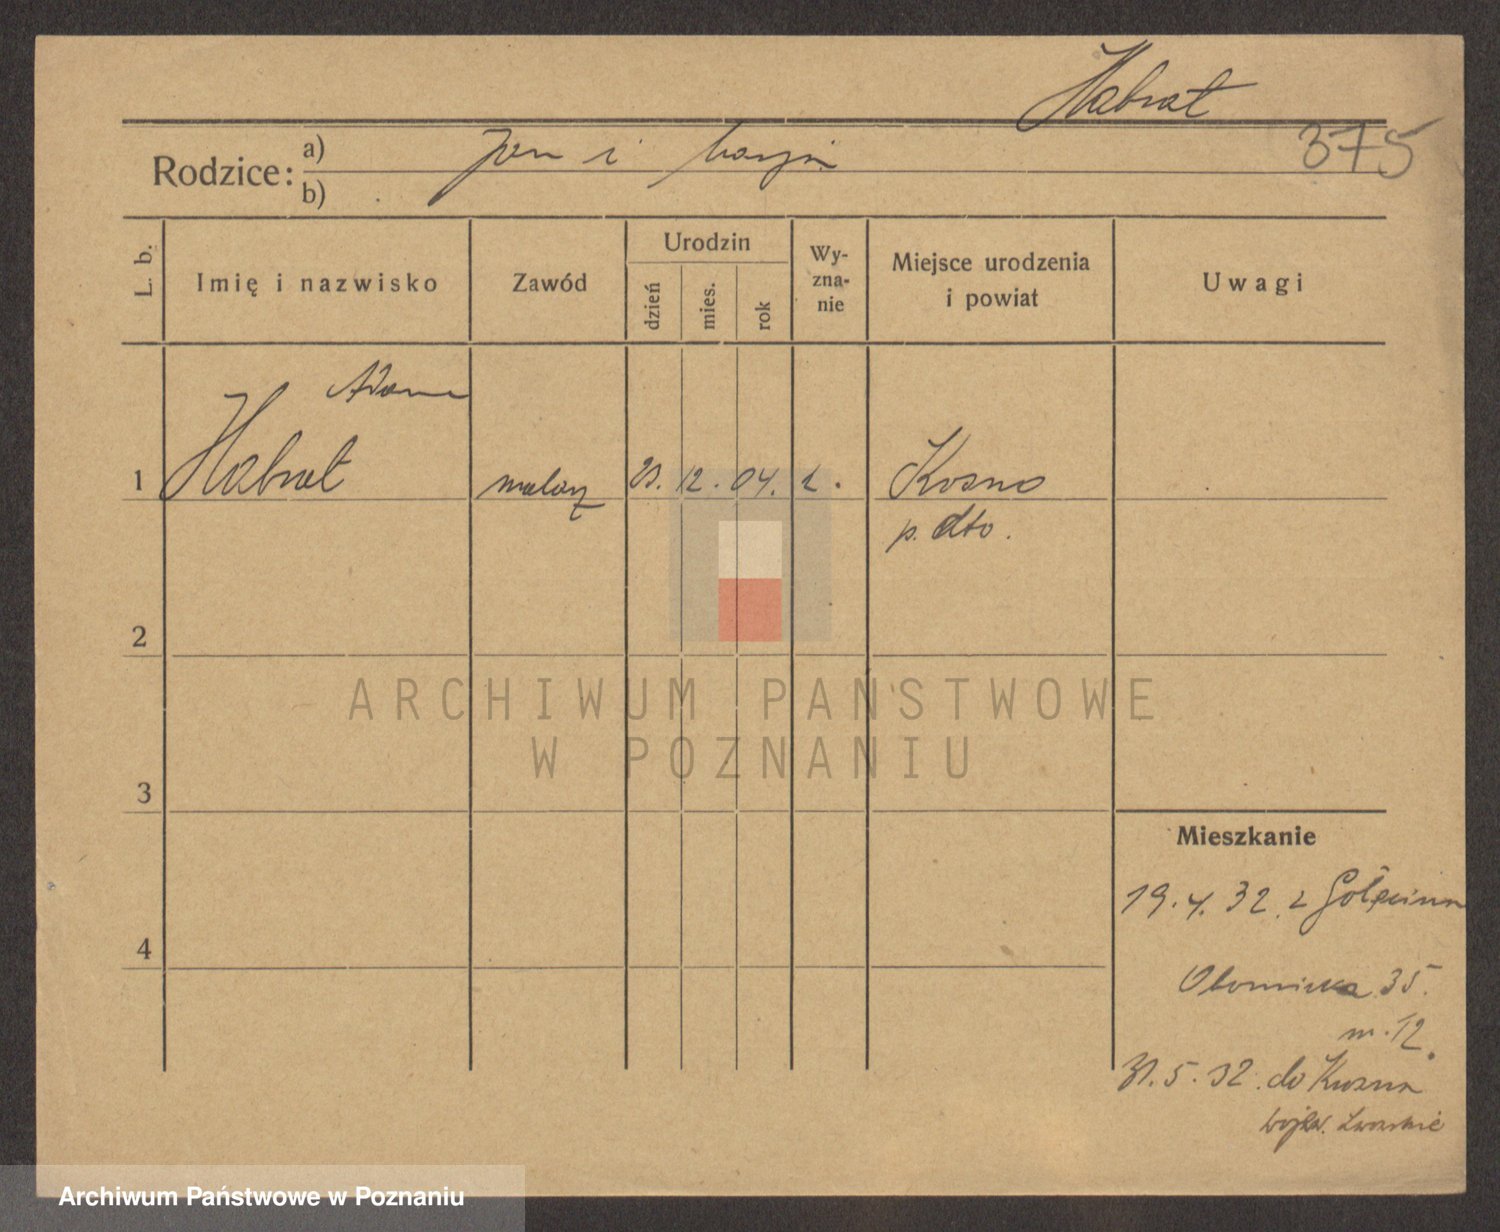 Habrat
375
Rodzice:
a) Jan i Marja
b)
L. b.
Imię i nazwisko
Zawód
Urodzin
dzień
mies.
rok
Wy-
zna-
nie
Miejsce urodzenia
i powiat
Uwagi
Adam
1 Habrat malarz 12. 04. Kosno
p. dto.
2
3
4
Mieszkanie
19. 4. 32. z Golęcina
35.
m. 12.
31. 5. 32. do
wojew. Lwowskie
ARCHIWUM PAŃSTWOWE
W POZNANIU
Archiwum Państwowe w Poznaniu